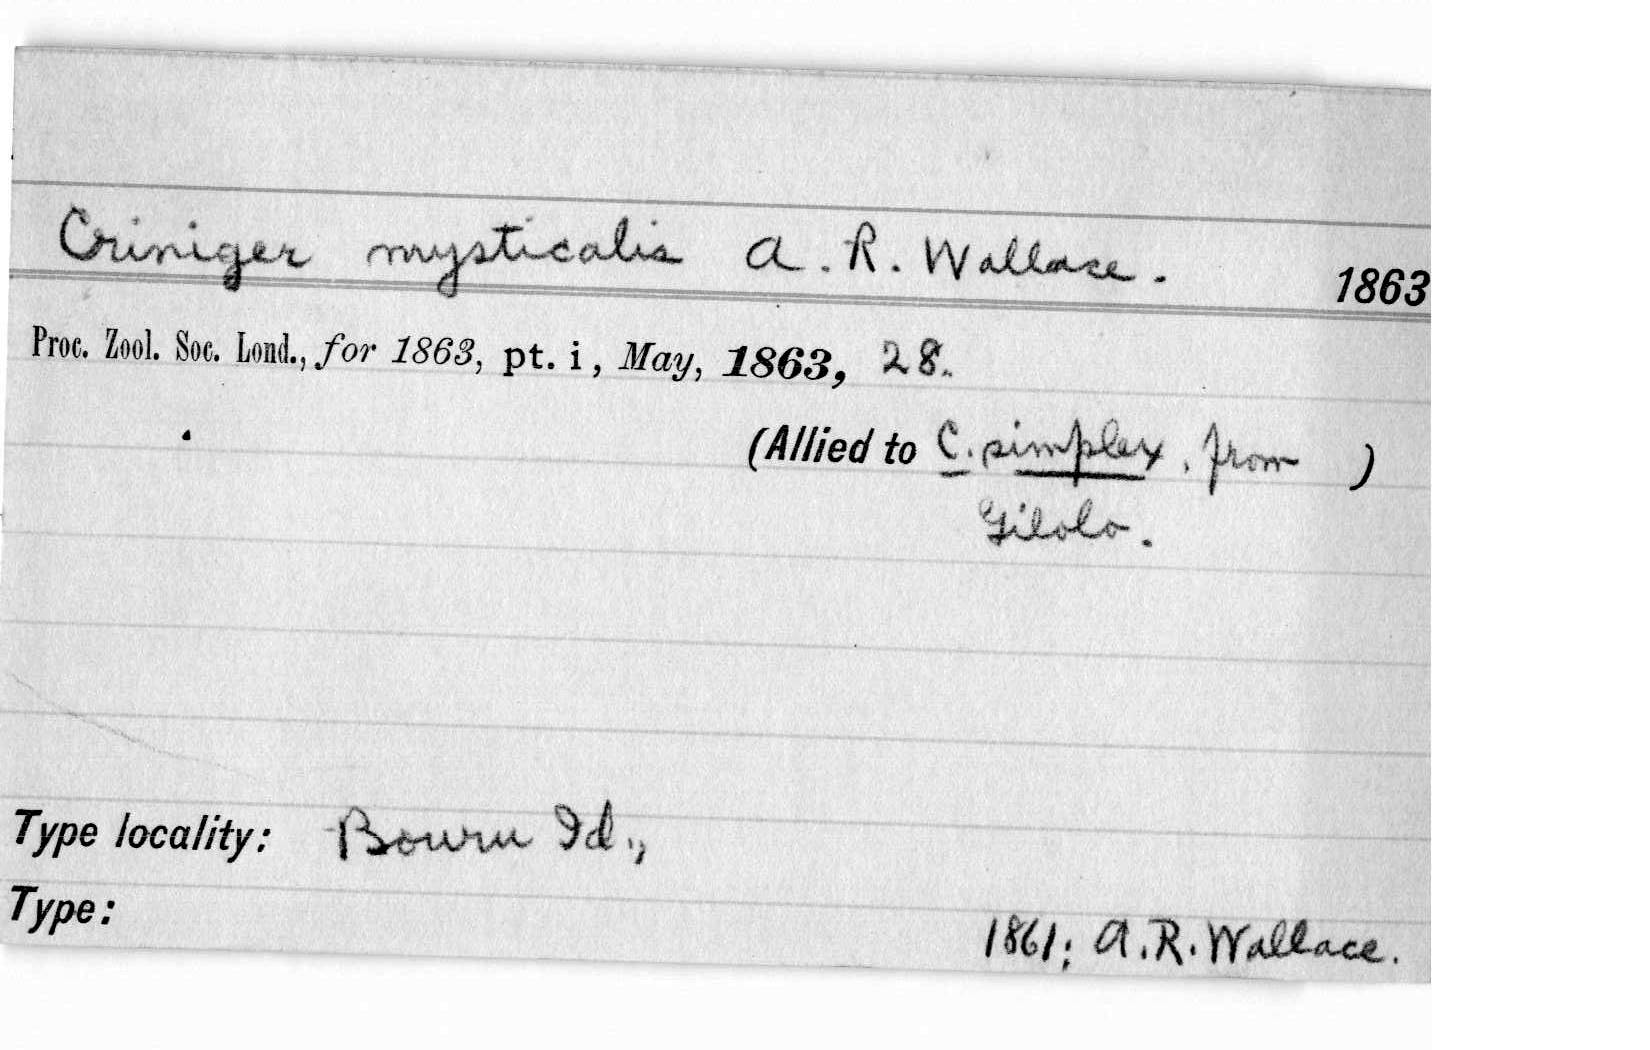 Criniger mysticalis A. R. Wallace. 1863
Proc. Zool. Soc. Lond., for 1863, pt. i, May, 1863, 28.
(Allied to C. simplex, from )
Gilolo.
Type locality: Bouru Id.,
Type:
1861; A.R. Wallace.